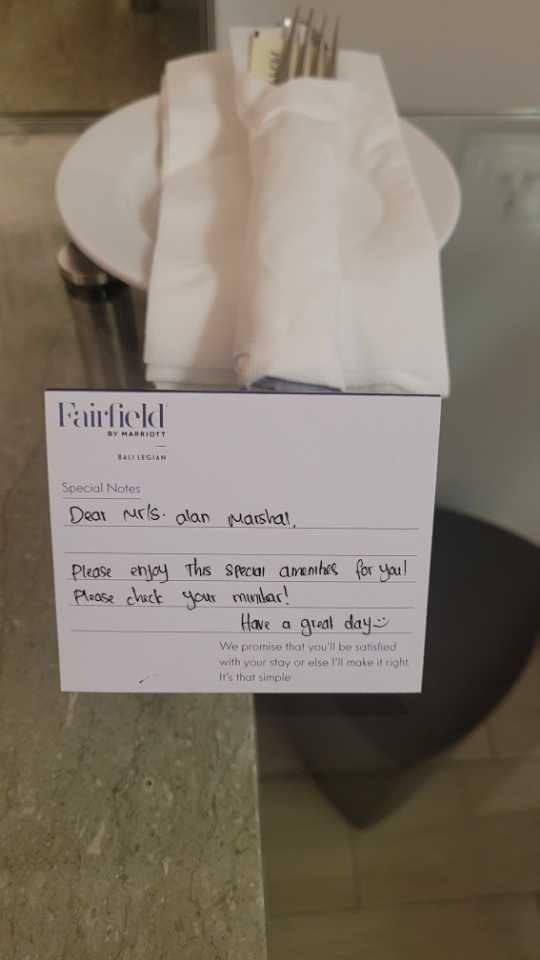 Fairfield
BY MARRIOTT
BALI LEGIAN
Special Notes
Dear Mr/s. alan Marshal,
Please enjoy This special amenities for you!
Please check your minibar!
Have a great day
We promise that you'll be satisfied
with your stay or else I'll make it right.
It's that simple